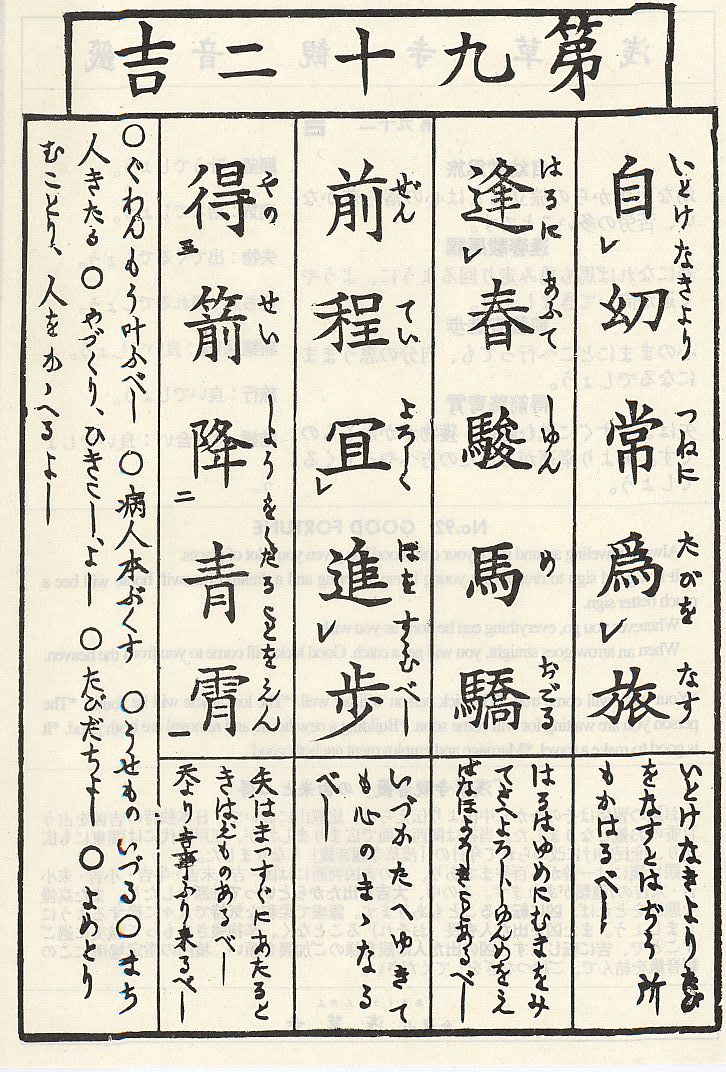 第九十二吉
いとけなきより つねに たびを なす
自幼常爲旅
いとけなきよりたび
をなすとはぢう所
もかはるべし
はるに あふて しゆん め おごる
逢春駿馬驕
はるはゆめにむまをみ
てさへよろし
あるべし
ぜん てい よろしく ほをすすむべし
前程冝進歩
いづかたへゆきて
も心のまゝなる
べし
やの せい しようをくだることをえん
得箭降青霄
五 二 一
矢はまつすぐにあたると
きはゑものあるべし
天より吉事ふり来るべし
〇ぐわんもう叶ふべし 〇病人本ぶくす 〇うせものいづる〇まち
人きたる〇やづくり、ひきこし、よし 〇たびだちよし 〇よめとり
むことり、人をかゝへるよし